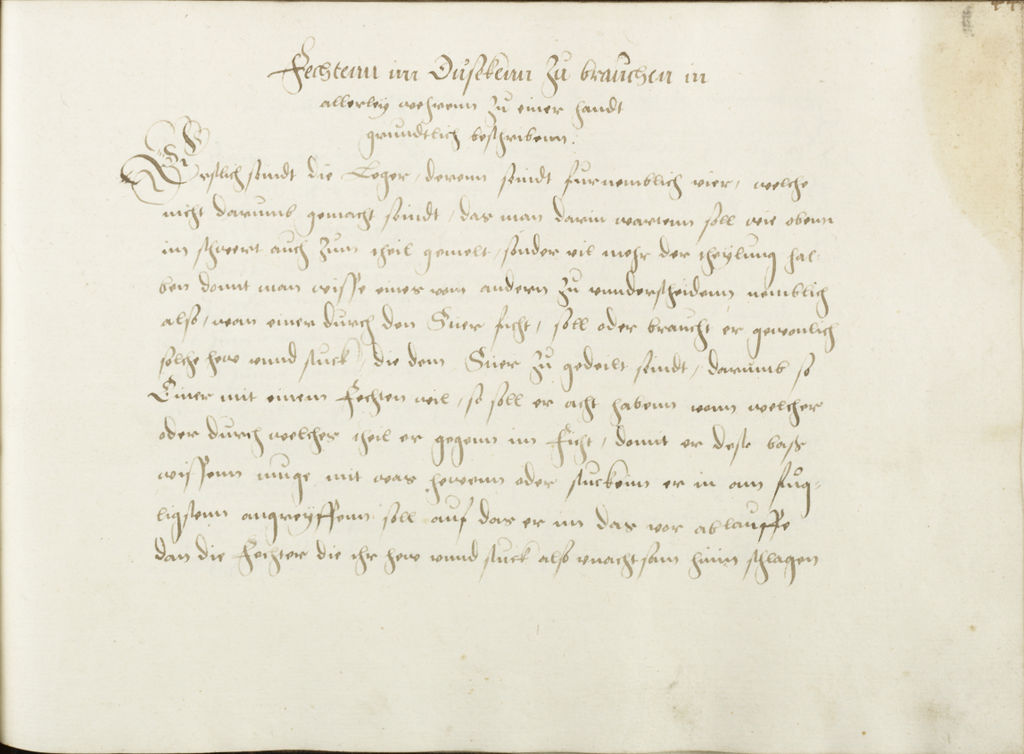 Fechtenn im Dusekenn zu brauchen in
allerley wehrenn zu einer handt
grundtlich beschribenn.
Erstlich seindt die Leger, derenn seindt furnemblich vier, welche
nicht darumb gemacht seindt, das man darin wartenn soll wie obenn
im schwert auch zum theil gemelt, sonder vil mehr der theylung hal-
ben domit man wisse eines vom andern zu vnnderscheidenn, nemblich
also, wan einer durch den Stier ficht, soll oder braucht er gewonlich
solche hew vnnd stuck, die dem Stier zu gedeilt seindt, darumb so
Einer mit einem Fechten wil, so soll er acht habenn vonn welcher
oder durch welches theil er gegenn im Ficht, domit er deste baß
wissenn muge mit was hewenn oder stuckenn er in am fug-
ligstenn angreyffenn soll auf das er im das vor ablauffe
dan die Fechter die ihr hew vnnd stuck also vnachtsam hinn schlagen